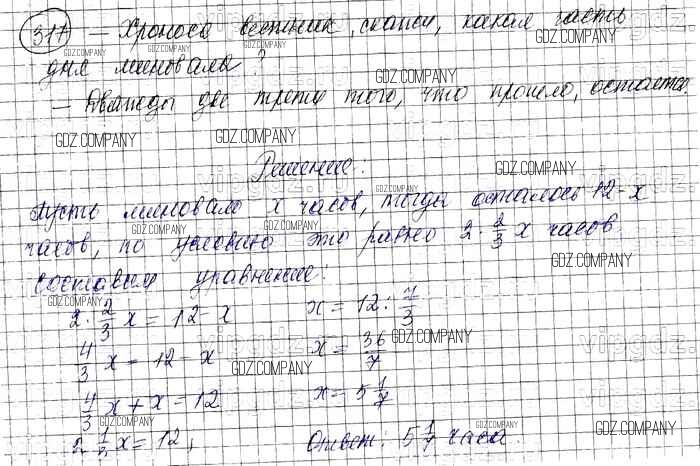 317 – Хроноса вестник, скажи, какая часть
дня миновала?
– Дважды две трети того, что прошло, остается.
Решение:
Пусть миновало x часов, тогда осталось 12-x
часов, по условию это равно 2·2/3 x часов.
Составим уравнение:
2·2/3 x = 12-x x = 12 : 7/3
4/3 x = 12-x x = 36/7
4/3 x + x = 12 x = 5 1/7
2 1/3 x = 12, Ответ: 5 1/7 часа.
GDZ.COMPANY
vipgdz.ru